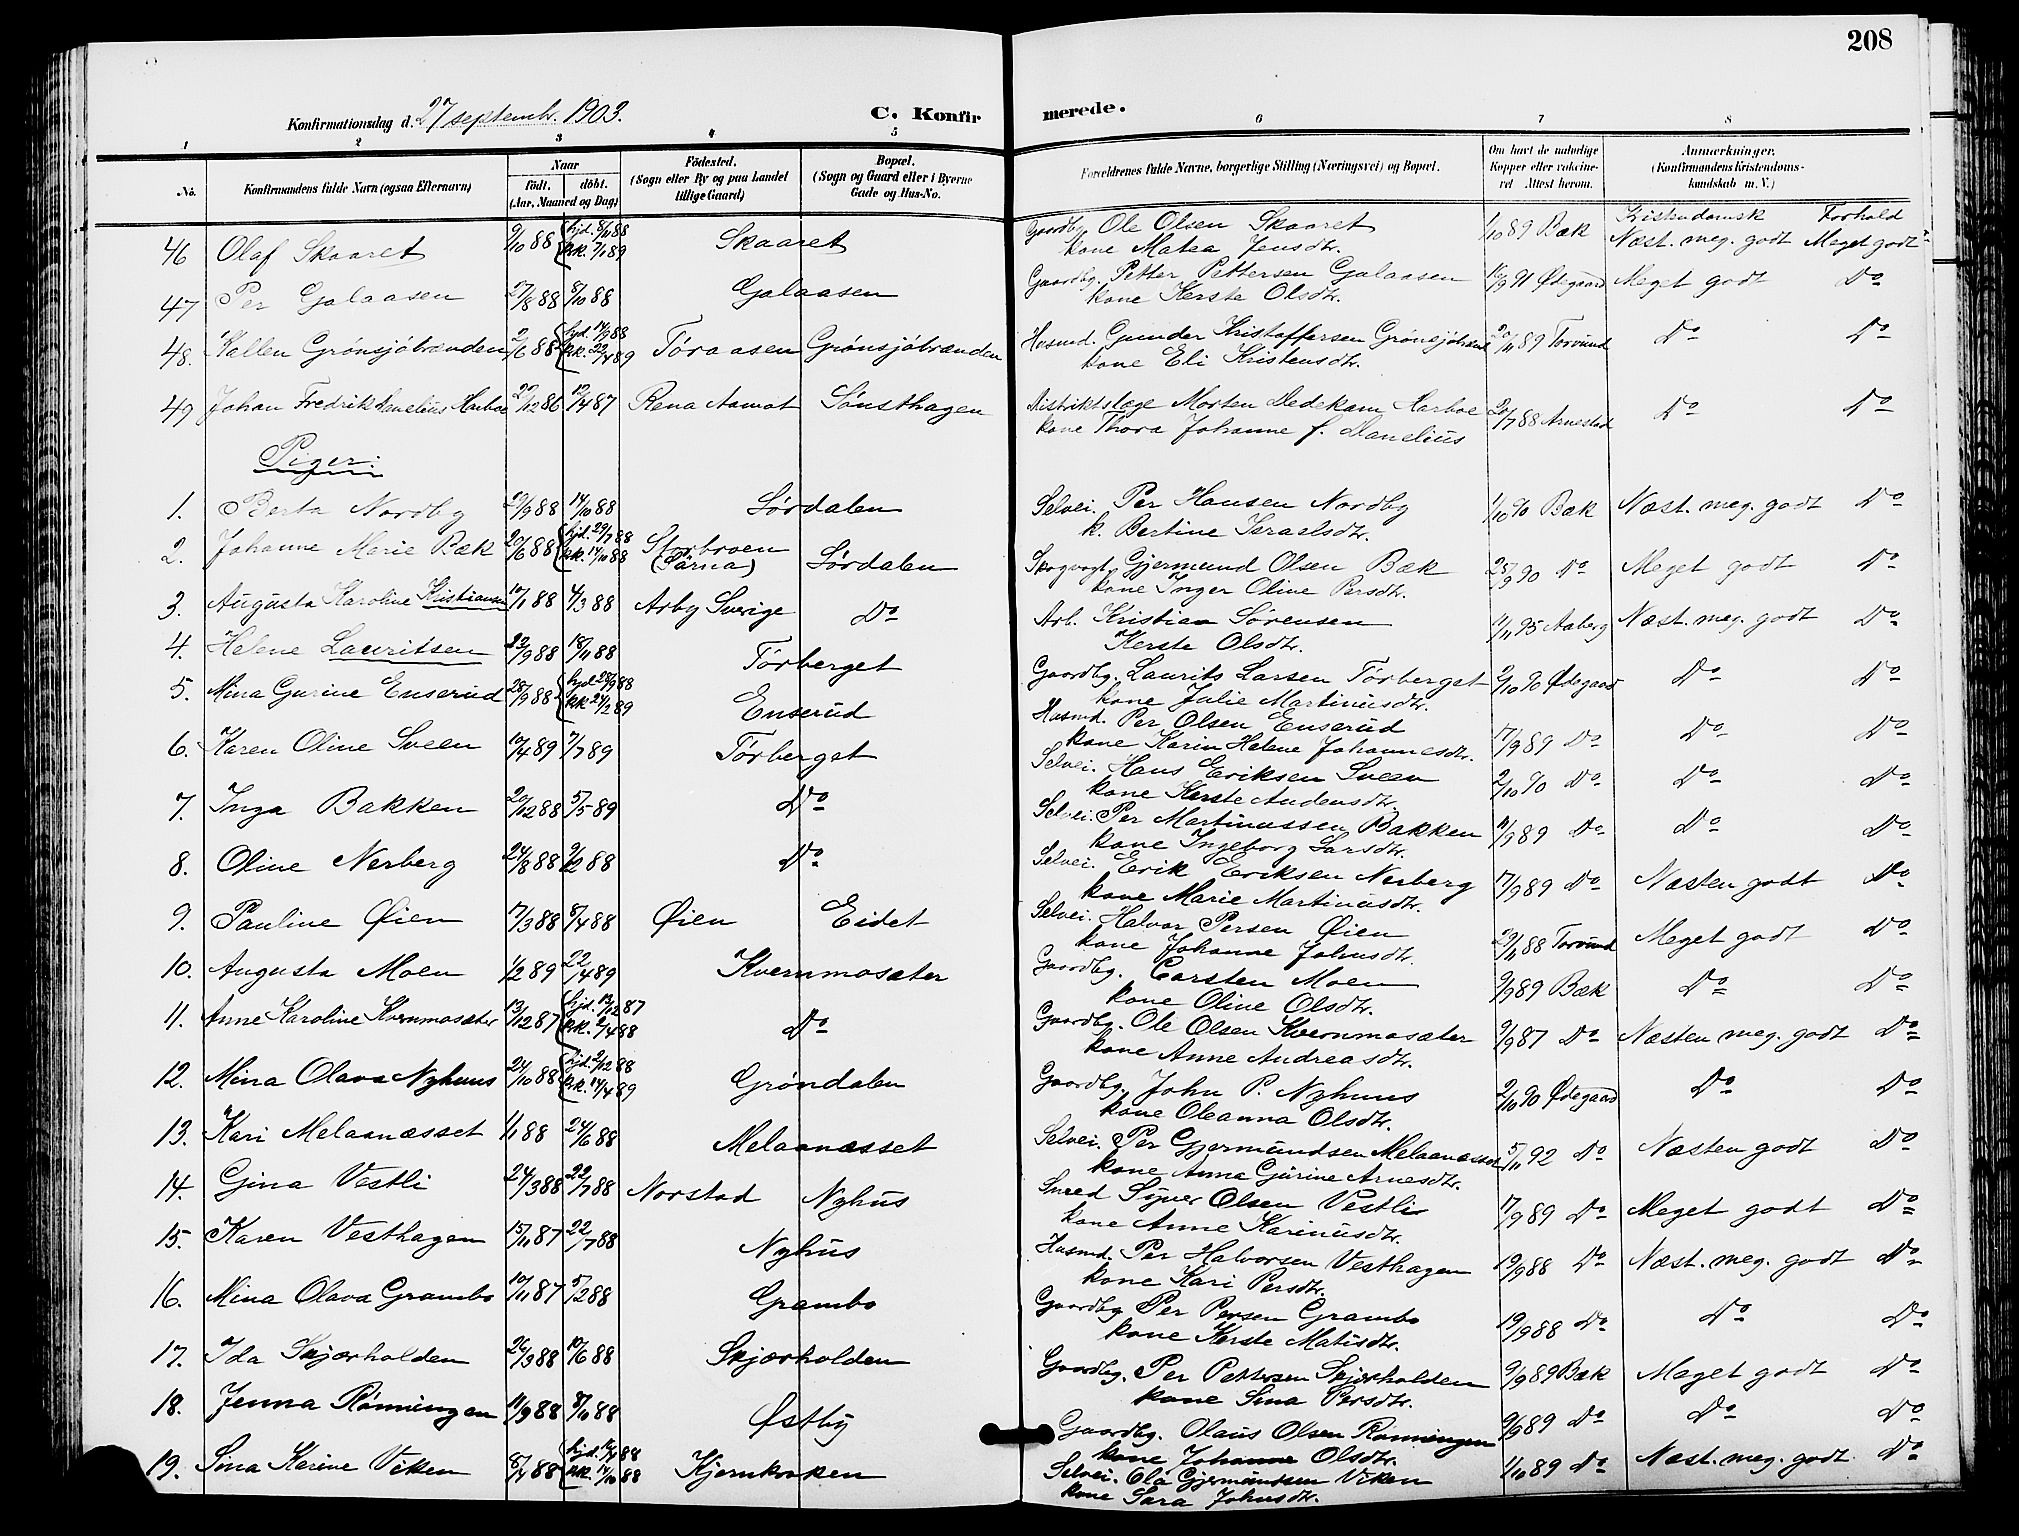 208
Konfirmationsdag d. 27 septembr. 1903.
C. Konfirmerede.
1 2 3 4 5 6 7 8
No. Konfirmandens fulde Navn (ogsaa Efternavn) Naar født, døbt. (Aar, Maaned og Dag) Fødested. (Sogn eller By og paa Landet tillige Gaard) Bopæl. (Sogn og Gaard eller i Byerne Gade og Hus-No. Forældrenes fulde Navne, borgerlige Stilling (Næringsvei) og Bopæl. Om havt de naturlige Kopper eller vaksineret Attest herom. Anmærkninger. (Konfirmandens Kristendomskundskab m. V.)
Kristendomsk Forhold
46 Olaf Skaaret 9/10 88 hjd. 8/11 88 Skaaret Gaardbg. Ole Olsen Skaaret 1/10 89 Bæk Næst. meg. godt Meget godt
kk. 7/1 89 kone Matea Jensdtr.
47 Per Galaasen 27/8 88 8/10 88 Galaasen Gaardbg. Petter Pettersen Galaasen 16/9 91 Ødegaard Meget godt Do
kone Kerste Olsdtr.
48. Kallen Grönsjöbrænden 2/6 88 hjd. 14/9 88 Töraasen Grönsjöbrænden Husmd. Gunder Kristoffersen Grönsjöbrænd 20/11 89 Torvund Do Do
kk. 22/4 89 kone Eli Kristensdtr.
49 Johan Fredrik Danelius Harboe 22/12 86 12/4 87 Rena Aamot Sönsthagen Distriktslæge Morten Dedekam Harboe 20/7 88 Arnestad Do Do
kone Thora Johanne f. Danelius
Piger:
1. Berta Nordby 29/9 88 14/10 88 Sørdalen Selvei. Per Hansen Nordby 1/10 90 Bæk Næst. meg. godt Do
k. Bertine Israelsdtr.
2. Johanne Marie Bæk 20/6 88 hjd. 29/7 88 Storbroen Sørdalen Skogvogt Gjermund Olsen Bæk 25/9 90 Do Meget godt Do
kk. 14/10 88 (Særna) kone Inger Oline Persdtr.
3. Augusta Karoline Kristiansen 10/1 88 4/3 88 Arby Sverige Do Arb. Kristian Sörensen 11/11 95 Aaberg Næst. meg. godt Do
Kerste Olsdtr.
4. Helene Lauritsen 23/9 88 18/11 88 Törberget Gaardbg. Laurits Larsen Törberget 2/10 90 Ødegaard Do Do
kone Julie Martinusdtr.
5. Mina Gurine Enserud 28/9 88 hjd. 28/9 88 Enserud Husmd. Per Olsen Enserud 17/9 89 Do Do Do
kk. 24/2 89 kone Karin Helene Johannesdtr.
6. Karen Oline Sveen 10/4 89 7/7 89 Törberget Selvei. Hans Eriksen Sveen 2/10 90 Do Do Do
kone Kerste Audensdtr.
7. Inga Bakken 20/12 88 5/5 89 Do Selvei. Per Martinussen Bakken 11/9 89 Do Do Do
kone Ingeborg Larsdtr.
8. Oline Nerberg 24/8 88 2/12 88 Do Selvei. Erik Eriksen Nerberg 17/9 89 Do Næsten godt Do
kone Marie Martinusdtr.
9. Pauline Øien 17/3 88 8/4 88 Øien Eidet Selvei. Halvor Persen Øien 29/11 88 Torvund Meget godt Do
kone Johanne Johnsdtr.
10. Augusta Moen 1/2 89 22/4 89 Kvernmosæter Gaardbg. Carsten Moen 9/9 89 Bæk Do Do
kone Oline Olsdtr.
11. Anne Karoline Kvernmosæter 13/12 87 hjd. 13/12 87 Do Gaardbg. Ole Olsen Kvernmosæter 9/9 87 Do Næsten meg. godt Do
kk. 2/4 88 kone Anne Andreasdtr.
12. Mina Olava Nyhuus 24/10 88 hjd. 2/12 88 Gröndalen Gaardbg. John P. Nyhuus 2/10 90 Ødegaard Do Do
kk. 14/4 89 kone Oleanna Olsdtr.
13. Kari Melaanæsset 1/1 88 24/6 88 Melaanæsset Selvei. Per Gjermundsen Melaanæsset 5/11 92 Do Næsten godt Do
kone Anna Gurine Arnesdtr.
14. Gina Vestli 24/3 88 22/7 88 Norstad Nyhus Smed Syver Olsen Vestli 17/9 89 Do Meget godt Do
kone Anne Karinusdtr.
15. Karen Vesthagen 15/11 87 22/7 88 Nyhus Husmd. Per Halvorsen Vesthagen 19/9 88 Do Næst. meg. godt Do
kone Kari Persdtr.
16. Mina Olava Grambo 10/11 87 5/2 88 Grambo Gaardbg. Per Persen Grambo 19/9 88 Do Do Do
kone Kerste Matisdtr.
17. Ida Skjærholden 26/3 88 10/6 88 Skjærholden Gaardbg. Per Pettersen Skjærholden 9/9 89 Bæk Meget godt Do
kone Sina Persdtr.
18. Jenna Rönningen 11/9 88 8/11 88 Østby Gaardbg. Olaus Olsen Rönningen 9/9 89 Do Do Do
kone Johanne Olsdtr.
19. Sina Karine Viken 8/4 88 hjd. 88 Kjernkroken Selvei. Ola Gjermundsen Viken 1/10 89 Do Næst. meg. godt Do
kk. 14/10 88 kone Sara Johnsdtr.